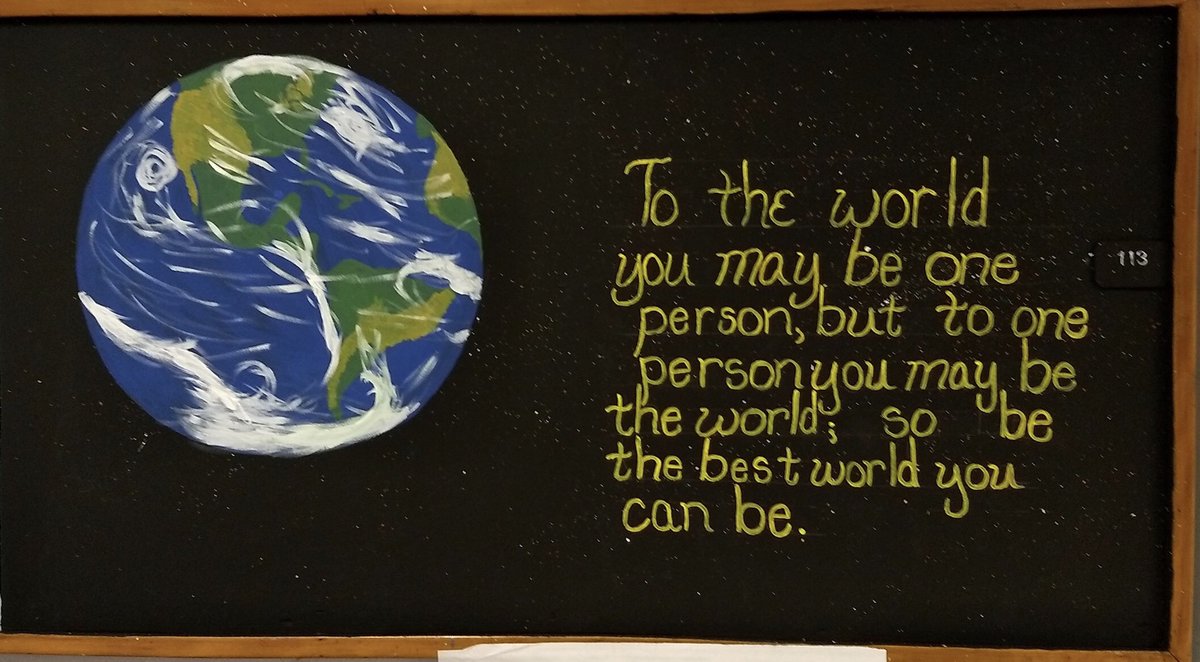 To the world
you may be one
person, but to one
person you may be
the world; so be
the best world you
can be.
113